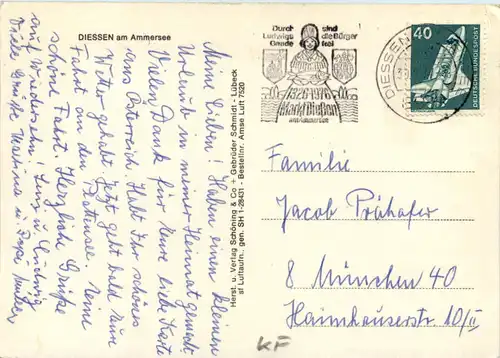 DIESSEN am Ammersee
Meine Lieben! Haben einen kleinen
Urlaub in meiner Heimat gemacht
Vielen Dank für Eure liebe Karte
aus Österreich. Habt Ihr schönes
Wetter gehabt. Jetzt geht bald Eure
Fahrt an den Plattensee. Eine
schöne Fahrt! Herzliche Grüße
auf Wiedersehn! u. Ludwig
Viele Grüße u.
Herst. u. Verlag Schöning & Co + Gebrüder Schmidt - Lübeck
af Luftaufn. gen. SH 1-28431 - Bestellnr. Amse Luft 7520
Durch sind
Ludwigs die Bürger
Gnade frei
1326-1976
Markt Dießen
am Ammersee
DIESSEN
40
DEUTSCHE BUNDESPOST
Familie
Jacob Prähofer
8 München 40
Haimhauserstr. 10/II
KF